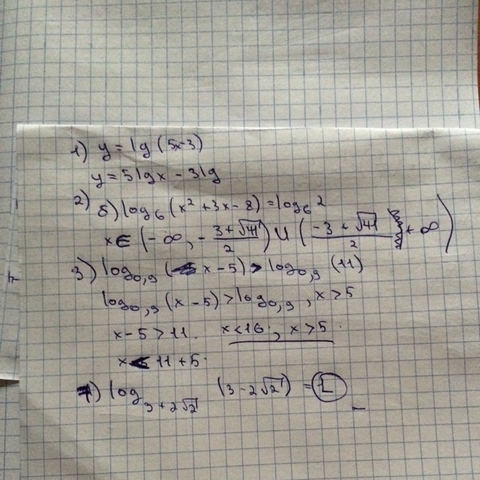 1) y = lg (5x-3)
y = 5lgx - 3lg
2) б) log₆ (x² + 3x - 8) = log₆ 2
x ∈ (-∞, -(3+√41)/2) ∪ ((-3+√41)/2, +∞)
3) log₀,₉ (x-5) > log₀,₉ (11)
log₀,₉ (x-5) > log₀,₉, x>5
x-5 > 11. x<16, x>5.
x < 11+5.
4) log₃₊₂√₂ (3-2√2) =